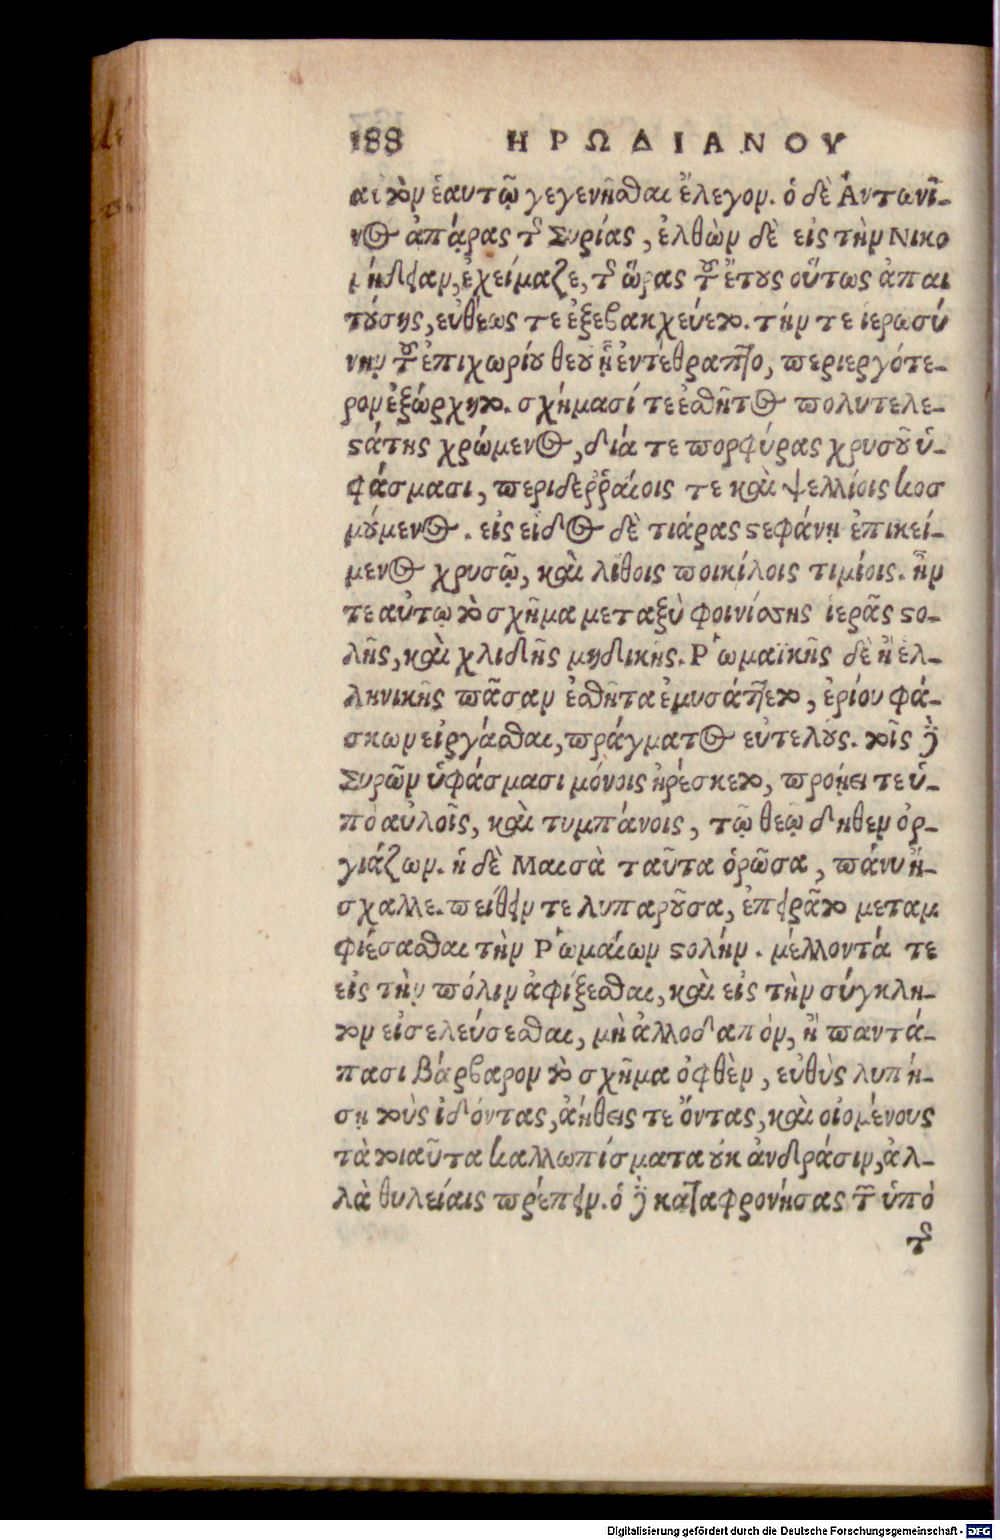 188 ΗΡΩΔΙΑΝΟΥ
αὶ τὸν ἑαυτῷ γεγενῆσθαι ἔλεγον. ὁ δὲ Ἀντωνῖ-
νος ἀπάρας τῆς Συρίας, ἐλθὼν δὲ εἰς τὴν Νικο
μήδειαν, ἐχείμαζε, τῆς ὥρας τοῦ ἔτους οὕτως ἀπαι
τούσης, εὐθέως τε ἐξεβακχεύετο. τήν τε ἱερωσύ
νην τοῦ ἐπιχωρίου θεοῦ ᾗ ἐντέθραπτο, περιεργότε-
ρον ἐξώρχητο. σχήμασί τε ἐσθῆτος πολυτελε-
στάτης χρώμενος, διά τε πορφύρας χρυσοῦ ὑ-
φάσμασι, περιδερῤαίοις τε καὶ ψελλίοις κοσ
μούμενος. εἰς εἶδος δὲ τιάρας στεφάνῃ ἐπικεί-
μενος χρυσῷ, καὶ λίθοις ποικίλοις τιμίοις. ἦν
τε αὐτῳ τὸ σχῆμα μεταξὺ φοινίσσης ἱερᾶς στο-
λῆς, καὶ χλιδῆς μηδικῆς. Ῥωμαϊκῆς δὲ ἢ ἑλ-
ληνικῆς πᾶσαν ἐσθῆτα ἐμυσάττετο, ἐρίου φά-
σκων εἰργάσθαι, πράγματος εὐτελοῦς. τοῖς δὲ
Συρῶν ὑφάσμασι μόνοις ἠρέσκετο, προῄει τε ὑ-
πὸ αὐλοῖς, καὶ τυμπάνοις, τῷ θεῷ δηθεν ὀρ-
γιάζων. ἡ δὲ Μαισὰ ταῦτα ὁρῶσα, πάνυ ἤ-
σχαλλε. πείθειν τε λυπαροῦσα, ἐπειρᾶτο μεταμ
φιέσασθαι τὴν Ῥωμαίων στολήν. μέλλοντά τε
εἰς τὴν πόλιν ἀφίξεσθαι, καὶ εἰς τὴν σύγκλη-
τον εἰσελεύσεσθαι, μὴ ἀλλοδαπὸν, ἢ παντά-
πασι βάρβαρον τὸ σχῆμα ὀφθὲν, εὐθὺς λυπή-
σῃ τοὺς ἰδόντας, ἀήθεις τε ὄντας, καὶ οἰομένους
τὰ τοιαῦτα καλλωπίσματα οὐκ ἀνδράσιν, ἀλ-
λὰ θυλείαις πρέπειν. ὁ δὲ καταφρονήσας τῶν ὑπὸ
τῆς
Digitalisierung gefördert durch die Deutsche Forschungsgemeinschaft - DFG